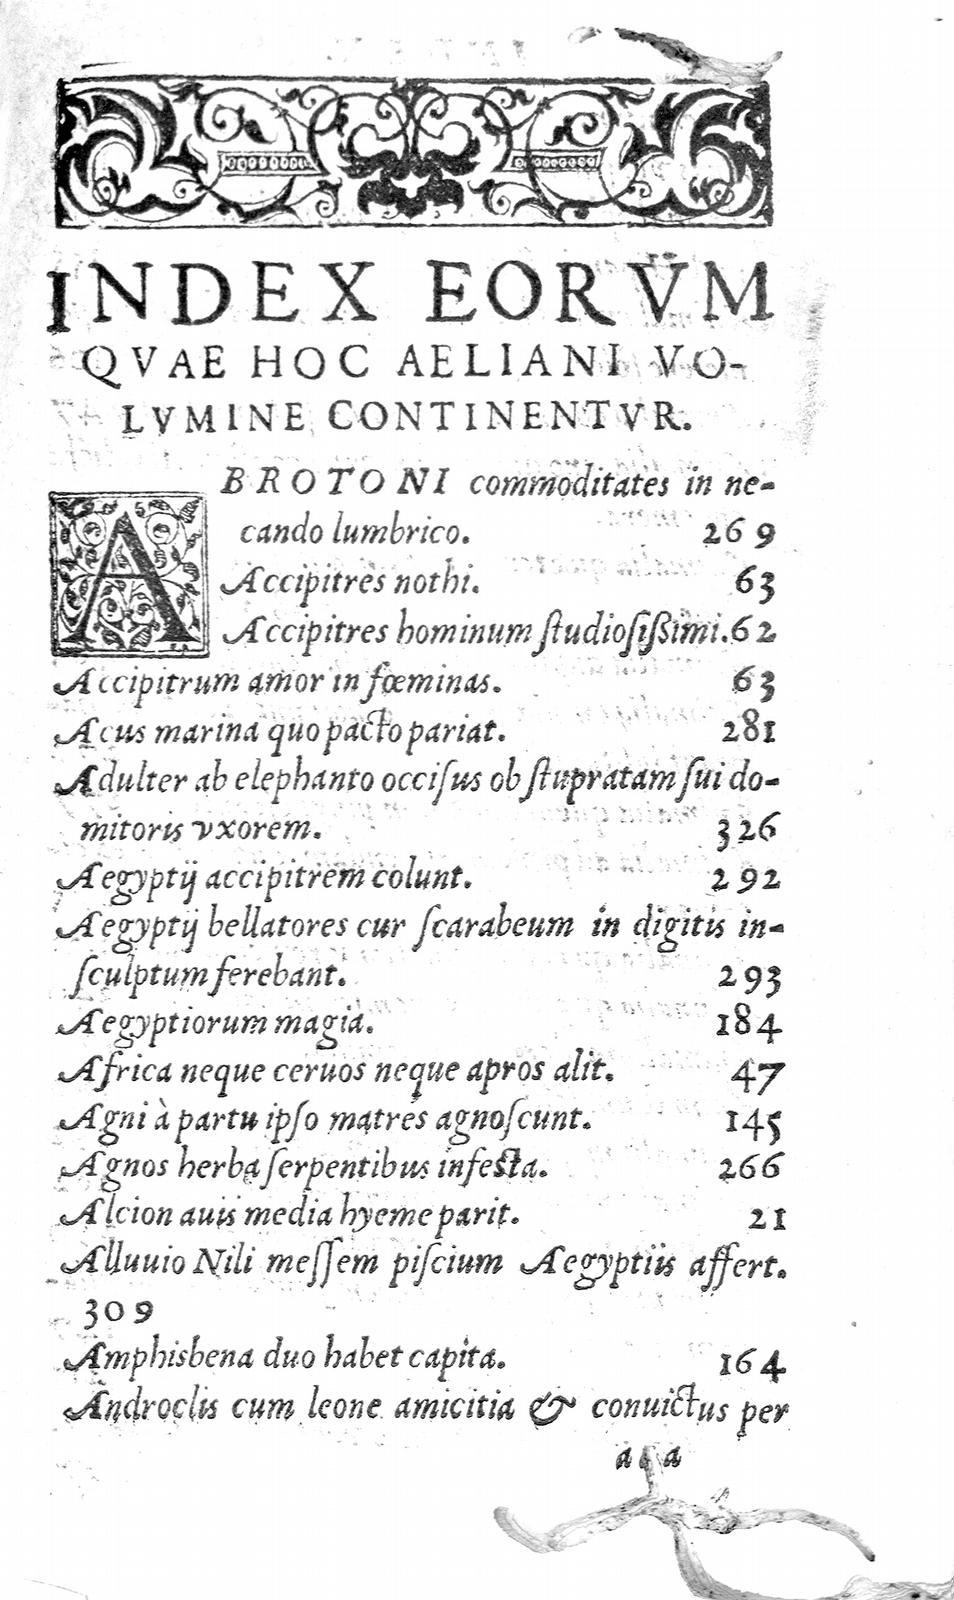 INDEX EORVM
QVAE HOC AELIANI VO-
LVMINE CONTINENTVR.
ABROTONI commoditates in ne-
cando lumbrico. 269
Accipitres nothi. 63
Accipitres hominum ſtudioſiſsimi. 62
Accipitrum amor in fœminas. 63
Acus marina quo pacto pariat. 281
Adulter ab elephanto occiſus ob ſtupratam ſui do-
mitoris vxorem. 326
Aegyptij accipitrem colunt. 292
Aegyptij bellatores cur ſcarabeum in digitis in-
ſculptum ferebant. 293
Aegyptiorum magia. 184
Africa neque ceruos neque apros alit. 47
Agni à partu ipſo matres agnoſcunt. 145
Agnos herba ſerpentibus infeſta. 266
Alcion auis media hyeme parit. 21
Alluuio Nili meſſem piſcium Aegyptiis affert.
309
Amphisbena duo habet capita. 164
Androclis cum leone amicitia & conuictus per